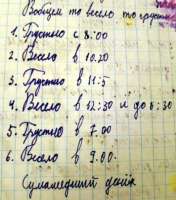 Вобщем то весело то грустно
1. Грустно с 8:00
2. Весело в 10.20
3. Грустно в 11:5
4. Весело в 12:30 и до 6:30
5. Грустно в 7.00
6. Весело в 9.00.
Сумасшедший дом